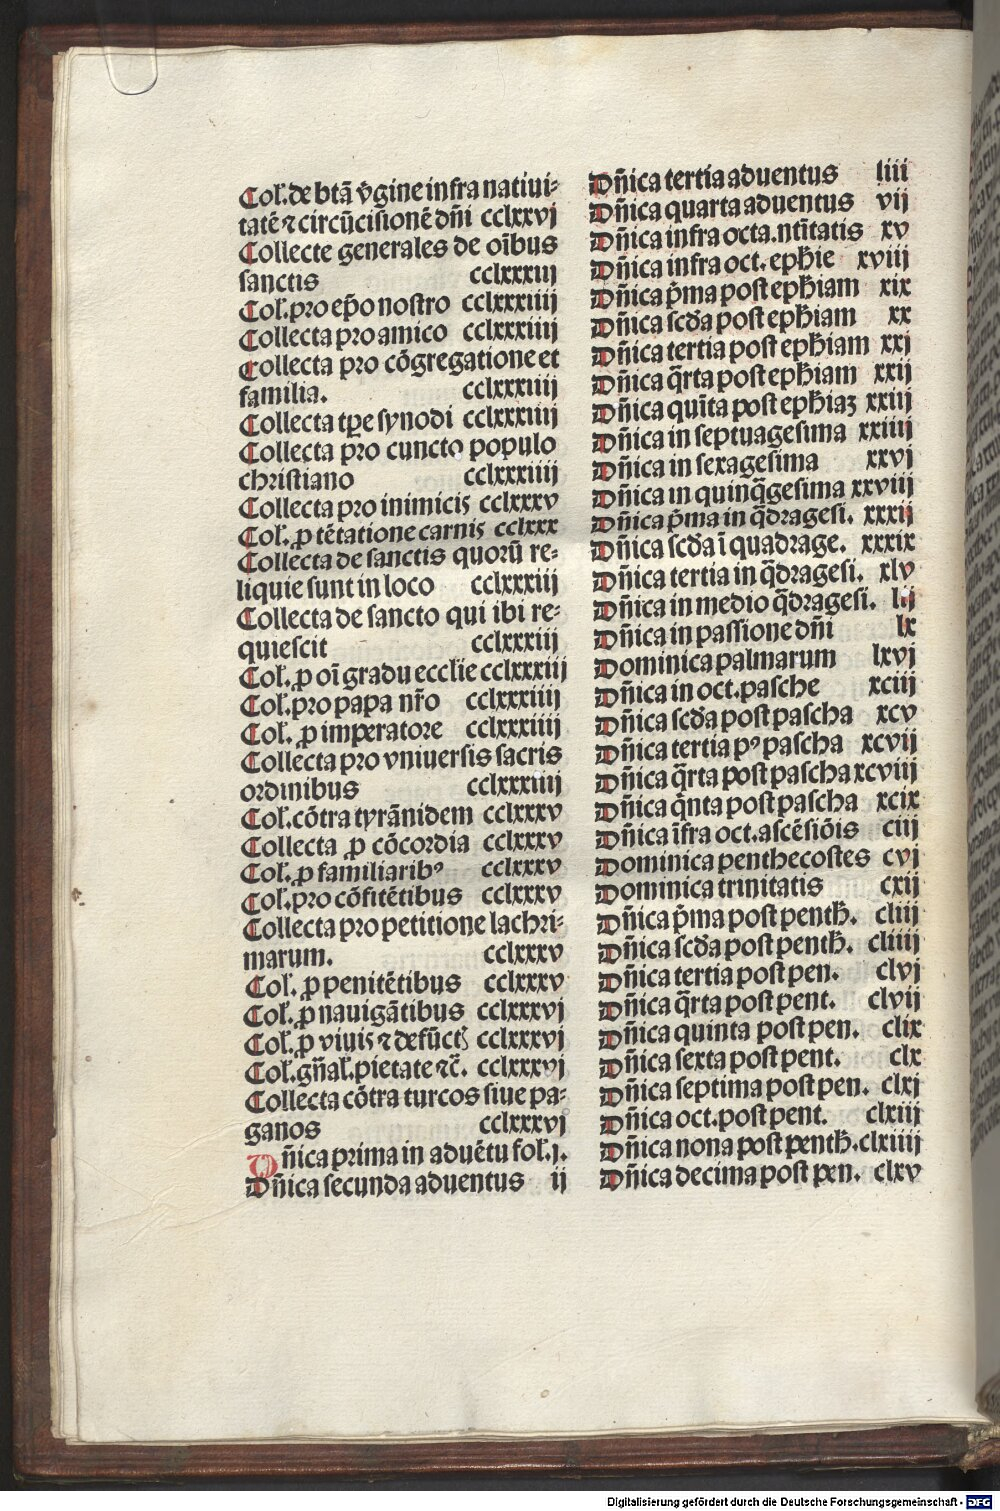 Col̃. de btã v̾gine infra natiui⸗
tatẽ ⁊ circũcisionẽ dñi cclxxvj
Collecte generales de oĩbus
sanctis cclxxxiij
Col̃. pro ep̃o nostro cclxxxiiij
Collecta pro amico cclxxxiiij
Collecta pro cõgregatione et
familia. cclxxxiiij
Collecta tp̃e synodi cclxxxiiij
Collecta pro cuncto populo
christiano cclxxxiiij
Collecta pro inimicis cclxxxv
Col̃. ꝓ tẽtatione carnis cclxxx
Collecta de sanctis quorũ re⸗
liquie sunt in loco cclxxxiij
Collecta de sancto qui ibi re⸗
quiescit cclxxxiij
Col̃. ꝓ oĩ gradu ecclie cclxxxiij
Col̃. pro papa nr̃o cclxxxiiij
Col̃. ꝓ imperatore cclxxxiiij
Collecta pro vniuersis sacris
ordinibus cclxxxiiij
Col̃. cõtra tyrãnidem cclxxxv
Collecta ꝓ cõcordia cclxxxv
Col̃. ꝓ familiaribꝰ cclxxxv
Col̃. pro cõfitẽtibus cclxxxv
Collecta pro petitione lachri⸗
marum. cclxxxv
Col̃. ꝓ penitẽtibus cclxxxv
Col̃. ꝓ nauigãtibus cclxxxvj
Col̃. ꝓ viuis ⁊ defũctꝭ cclxxxvj
Col̃. gñal̃. pietate ⁊c̃. cclxxxvj
Collecta cõtra turcos siue pa⸗
ganos cclxxxvj
Dñica prima in aduẽtu fol̃. j.
Dñica secunda aduentus ij
Dñica tertia aduentus iiij
Dñica quarta aduentus vij
Dñica infra octa. ntĩtatis xv
Dñica infra oct. eph̃ie xviij
Dñica p̃ma post eph̃iam xix
Dñica scđa post eph̃iam xx
Dñica tertia post eph̃iam xxj
Dñica q̃rta post eph̃iam xxij
Dñica quĩta post eph̃iaꝫ xxiij
Dñica in septuagesima xxiiij
Dñica in sexagesima xxvj
Dñica in quinq̃gesima xxviij
Dñica p̃ma in q̃dragesi. xxxij
Dñica scđa ĩ quadrage. xxxix
Dñica tertia in q̃dragesi. xlv
Dñica in medio q̃dragesi. lij
Dñica in passione dñi lx
Dominica palmarum lxvj
Dñica in oct. pasche xciij
Dñica scđa post pascha xcv
Dñica tertia pꝰ pascha xcvij
Dñica q̃rta post pascha xcviij
Dñica q̃nta post pascha xcix
Dñica ĩfra oct. ascẽsiõis ciij
Dominica penthecostes cvj
Dominica trinitatis cxij
Dñica p̃ma post penth̃. cliij
Dñica scđa post penth̃. cliiij
Dñica tertia post pen. clvj
Dñica q̃rta post pent. clvij
Dñica quinta post pen. clix
Dñica sexta post pent. clx
Dñica septima post pen. clxj
Dñica oct. post pent. clxiij
Dñica nona post penth̃. clxiiij
Dñica decima post pen. clxv
Digitalisierung gefördert durch die Deutsche Forschungsgemeinschaft - DFG